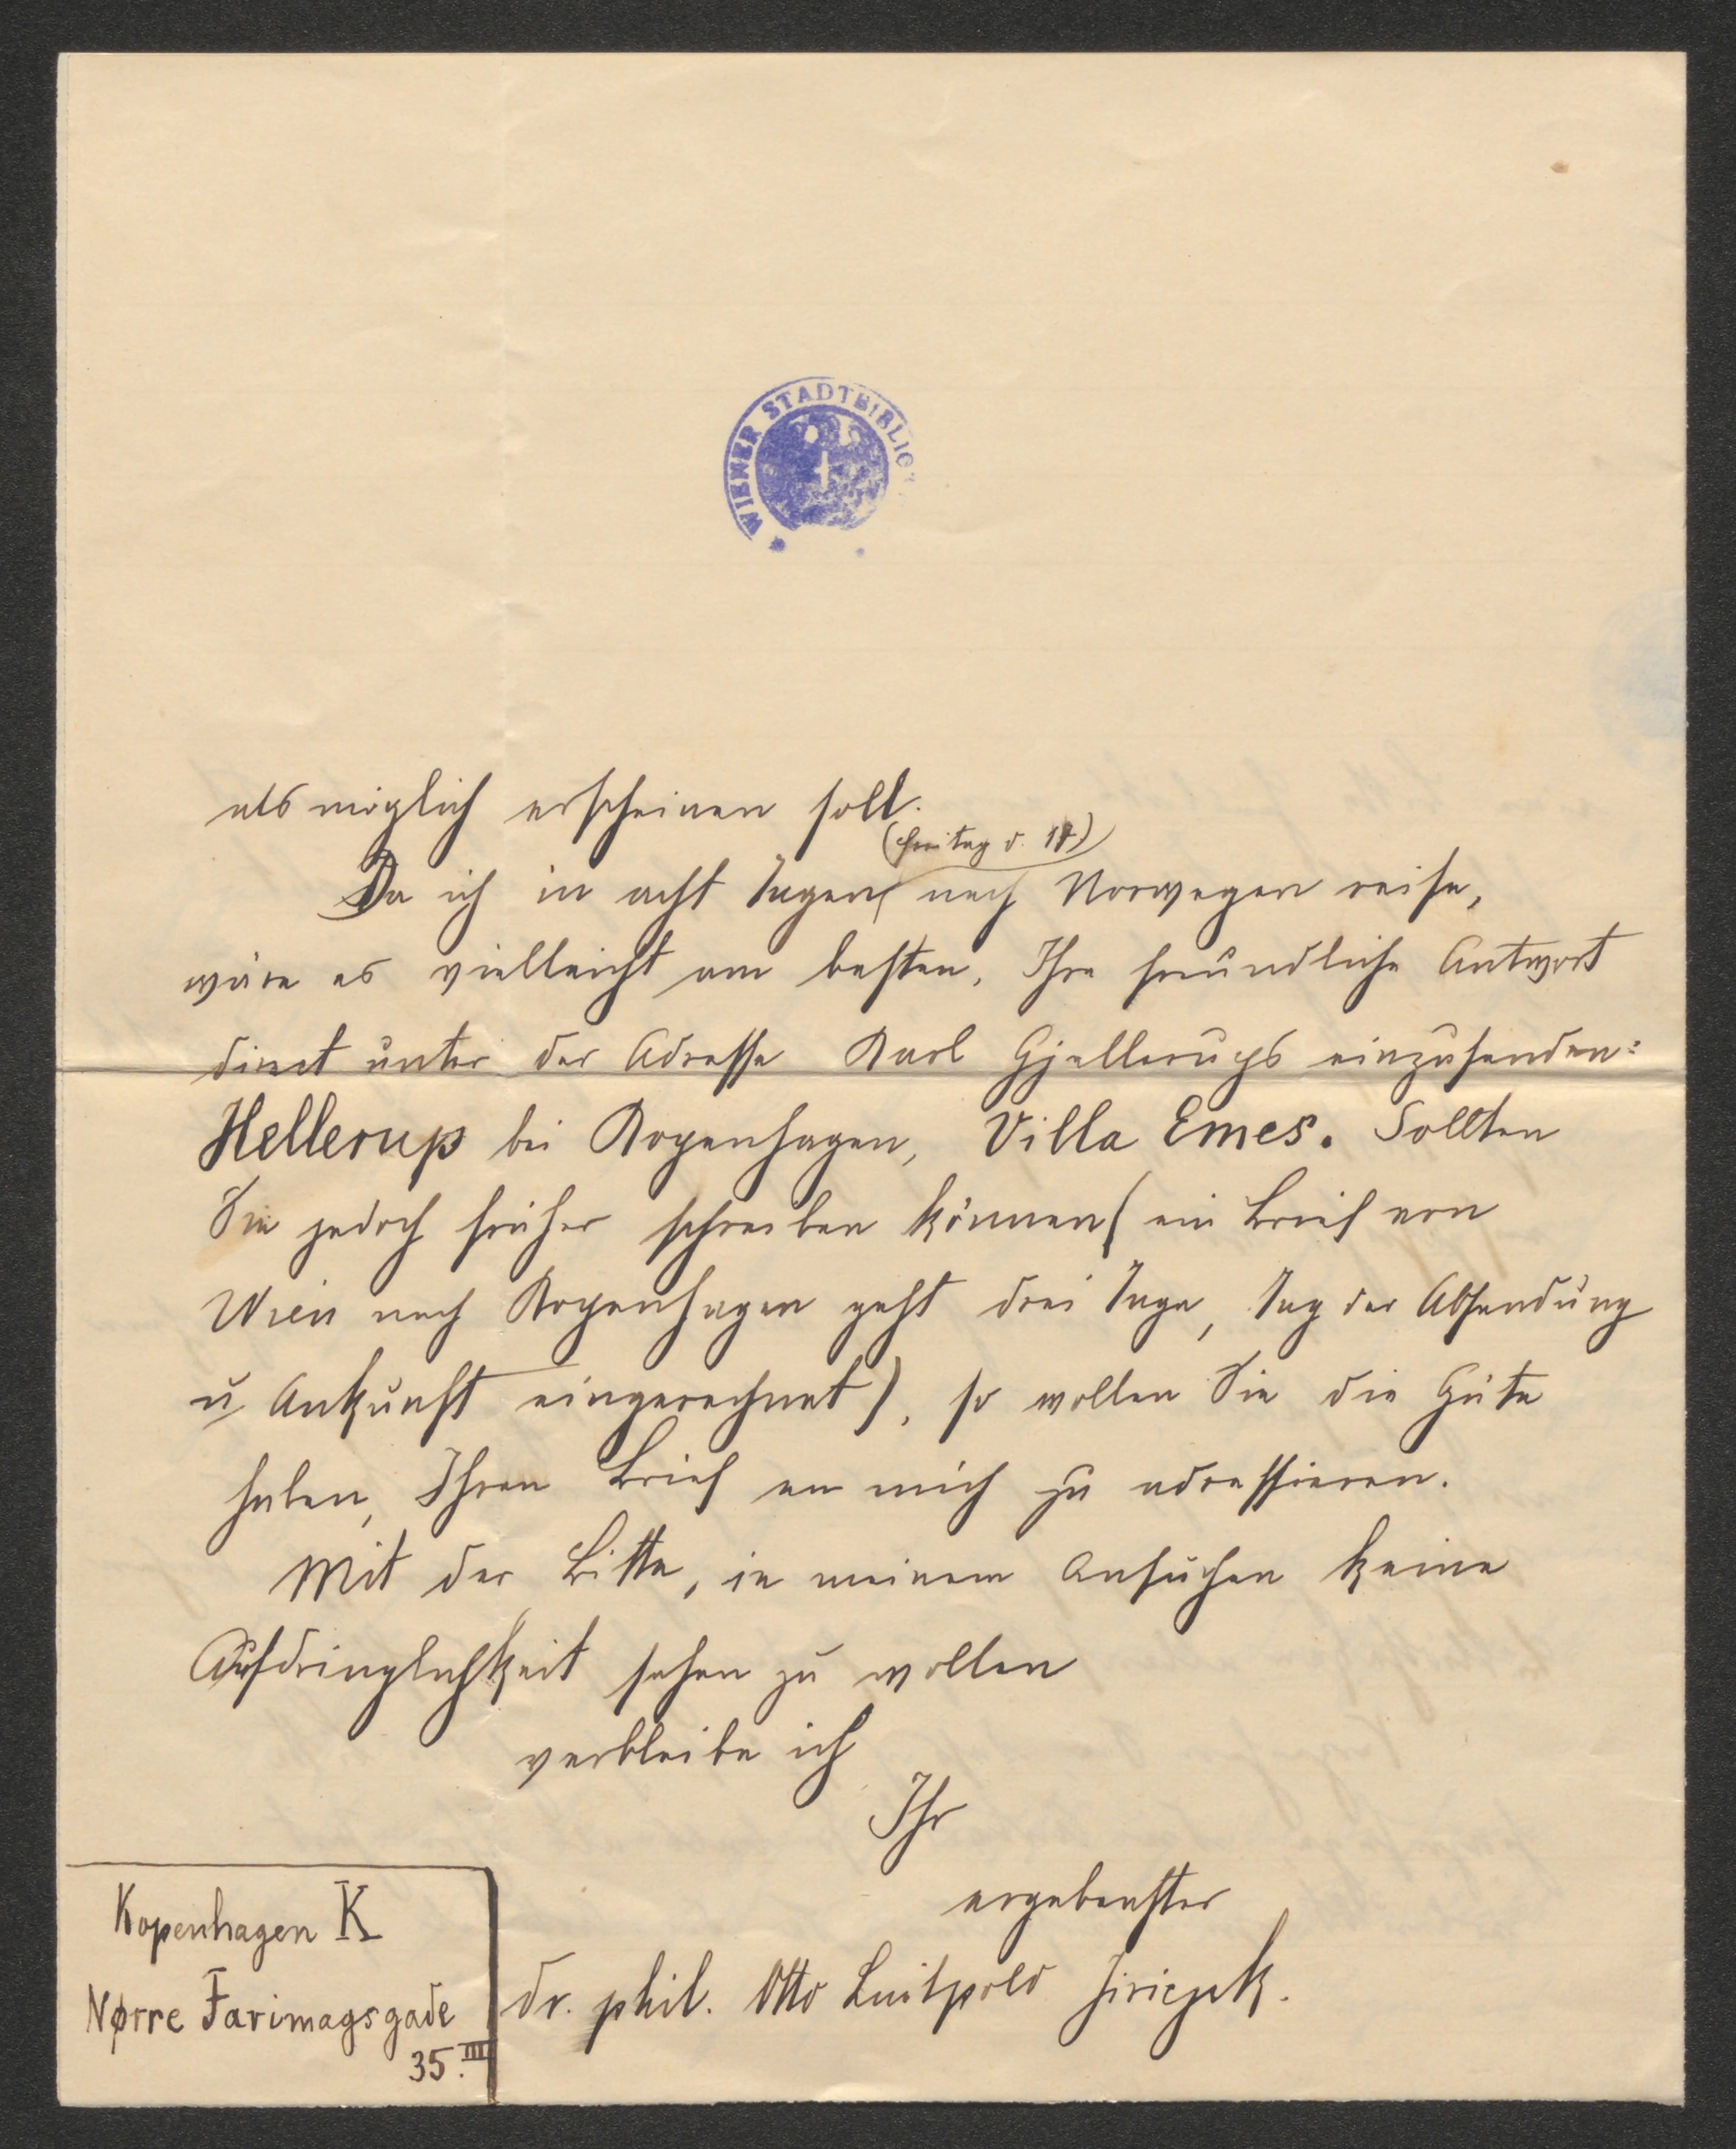 WIENER STADTBIBLIO
als möglich erscheinen soll.
(Freitag d. 17)
Da ich in acht Tagen nach Norwegen reise,
wäre es vielleicht am besten, Ihre freundliche Antwort
direct unter der Adresse Karl Gjellerups einzusenden:
Hellerup bei Kopenhagen, Villa Emes. Sollten
Sie jedoch früher schreiben können (ein Brief von
Wien nach Kopenhagen geht drei Tage, Tag der Absendung
u Ankunft eingerechnet), so wollen Sie die Güte
haben, Ihren Brief an mich zu adressieren.
Mit der Bitte, in meinem Ansuchen keine
Aufdringlichkeit sehen zu wollen
verbleibe ich
Ihr
ergebenster
dr. phil. Otto Luitpold Jiriczek.
Kopenhagen K
Nørre Farimagsgade
35.III